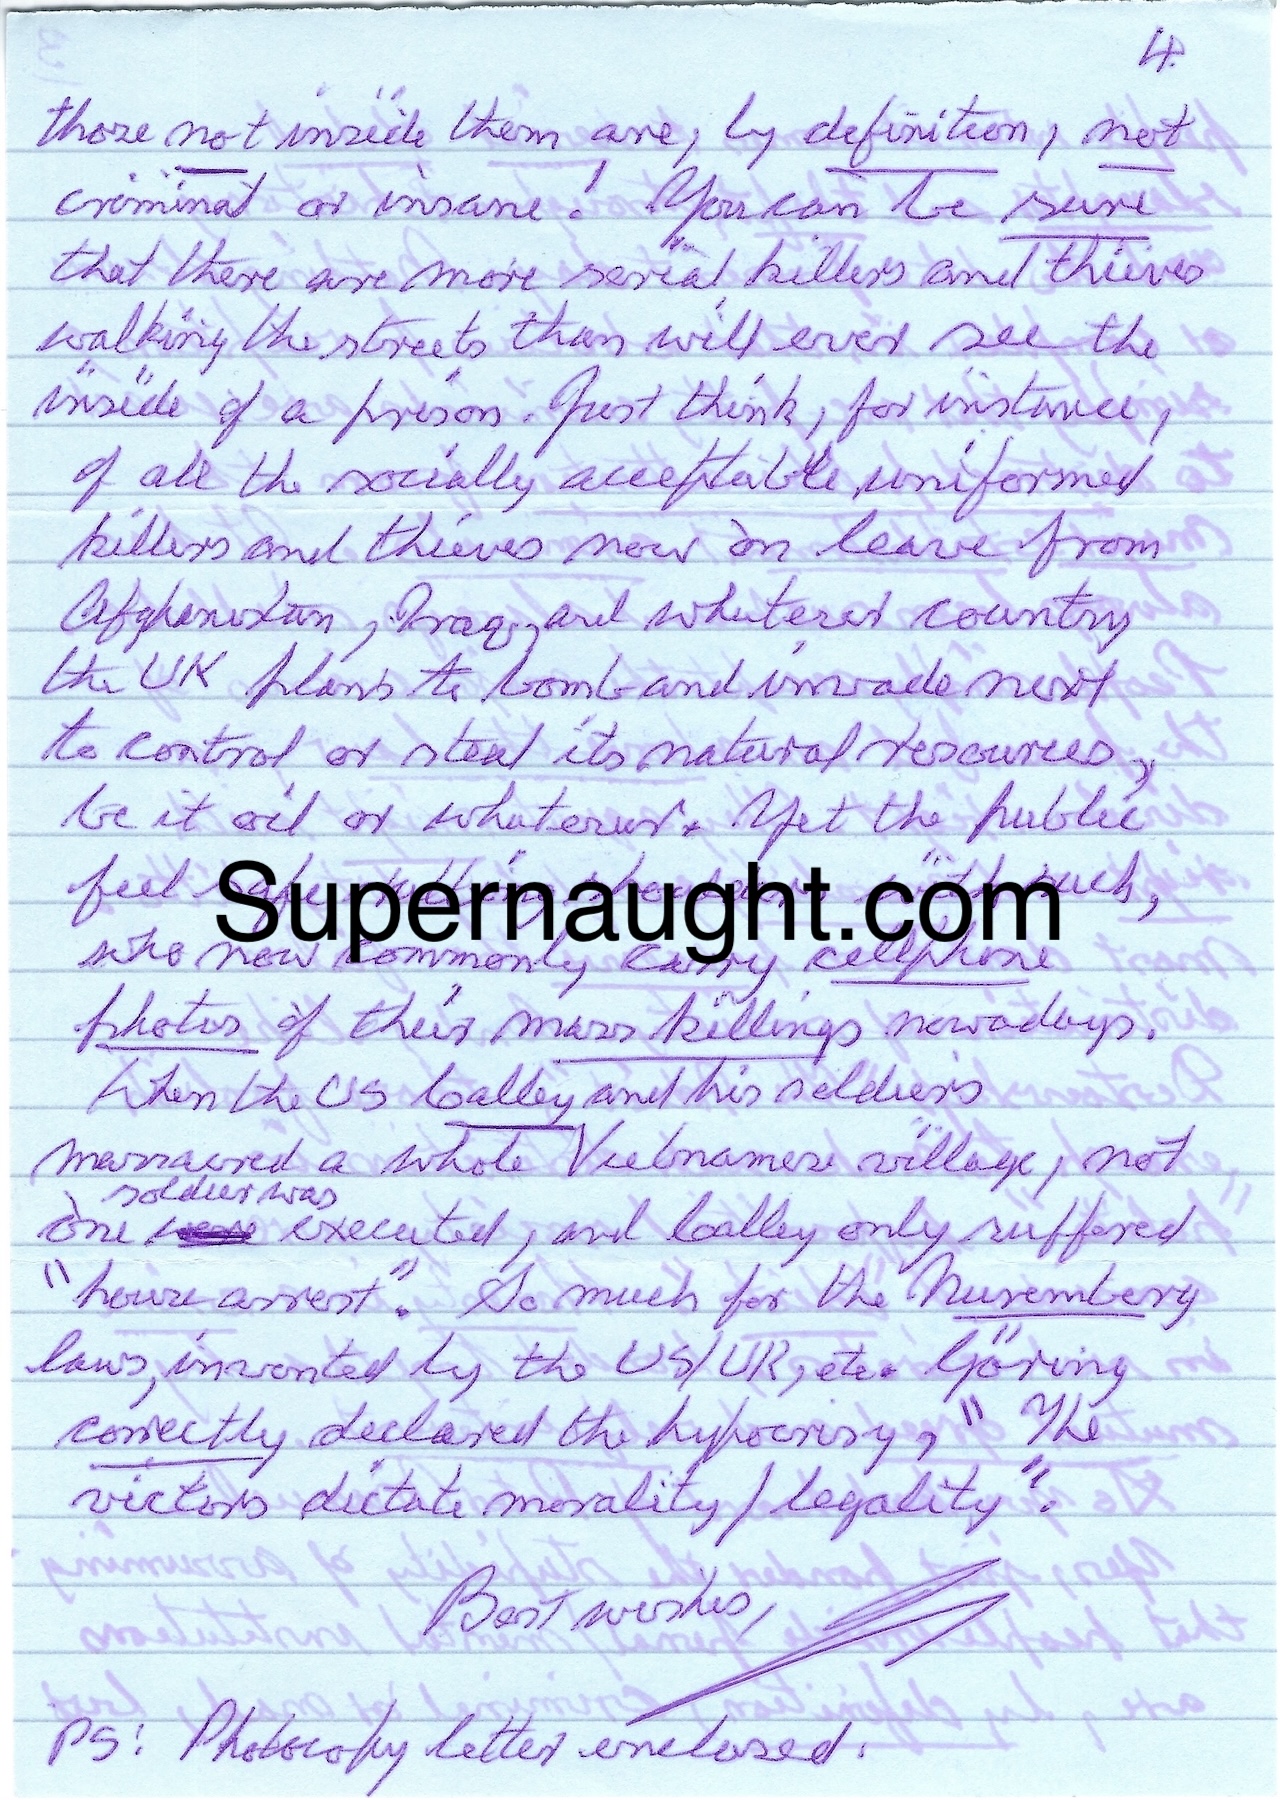 4.
those not inside them are, by definition, not
criminal or insane! You can be sure
that there are more serial killers and thieves
walking the streets than will ever see the
inside of a prison. Just think, for instance,
of all the socially acceptable, uniformed
killers and thieves now on leave from
Afghanistan, Iraq, and whatever country
the UK plans to bomb and invade next
to control or steal its natural resources,
be it oil or whatever. Yet the public
feel such,
Supernaught.com
who now commonly carry cellphone
photos of their mass killings nowadays.
When the US Calley and his soldiers
massacred a whole Vietnamese village, not
soldier was
one executed, and Calley only suffered
"house arrest". So much for the Nuremberg
laws, invented by the US/UK, etc. Göring
correctly declared the hypocrisy, "The
victors dictate morality/legality".
Best wishes,
PS: Photocopy letter enclosed.